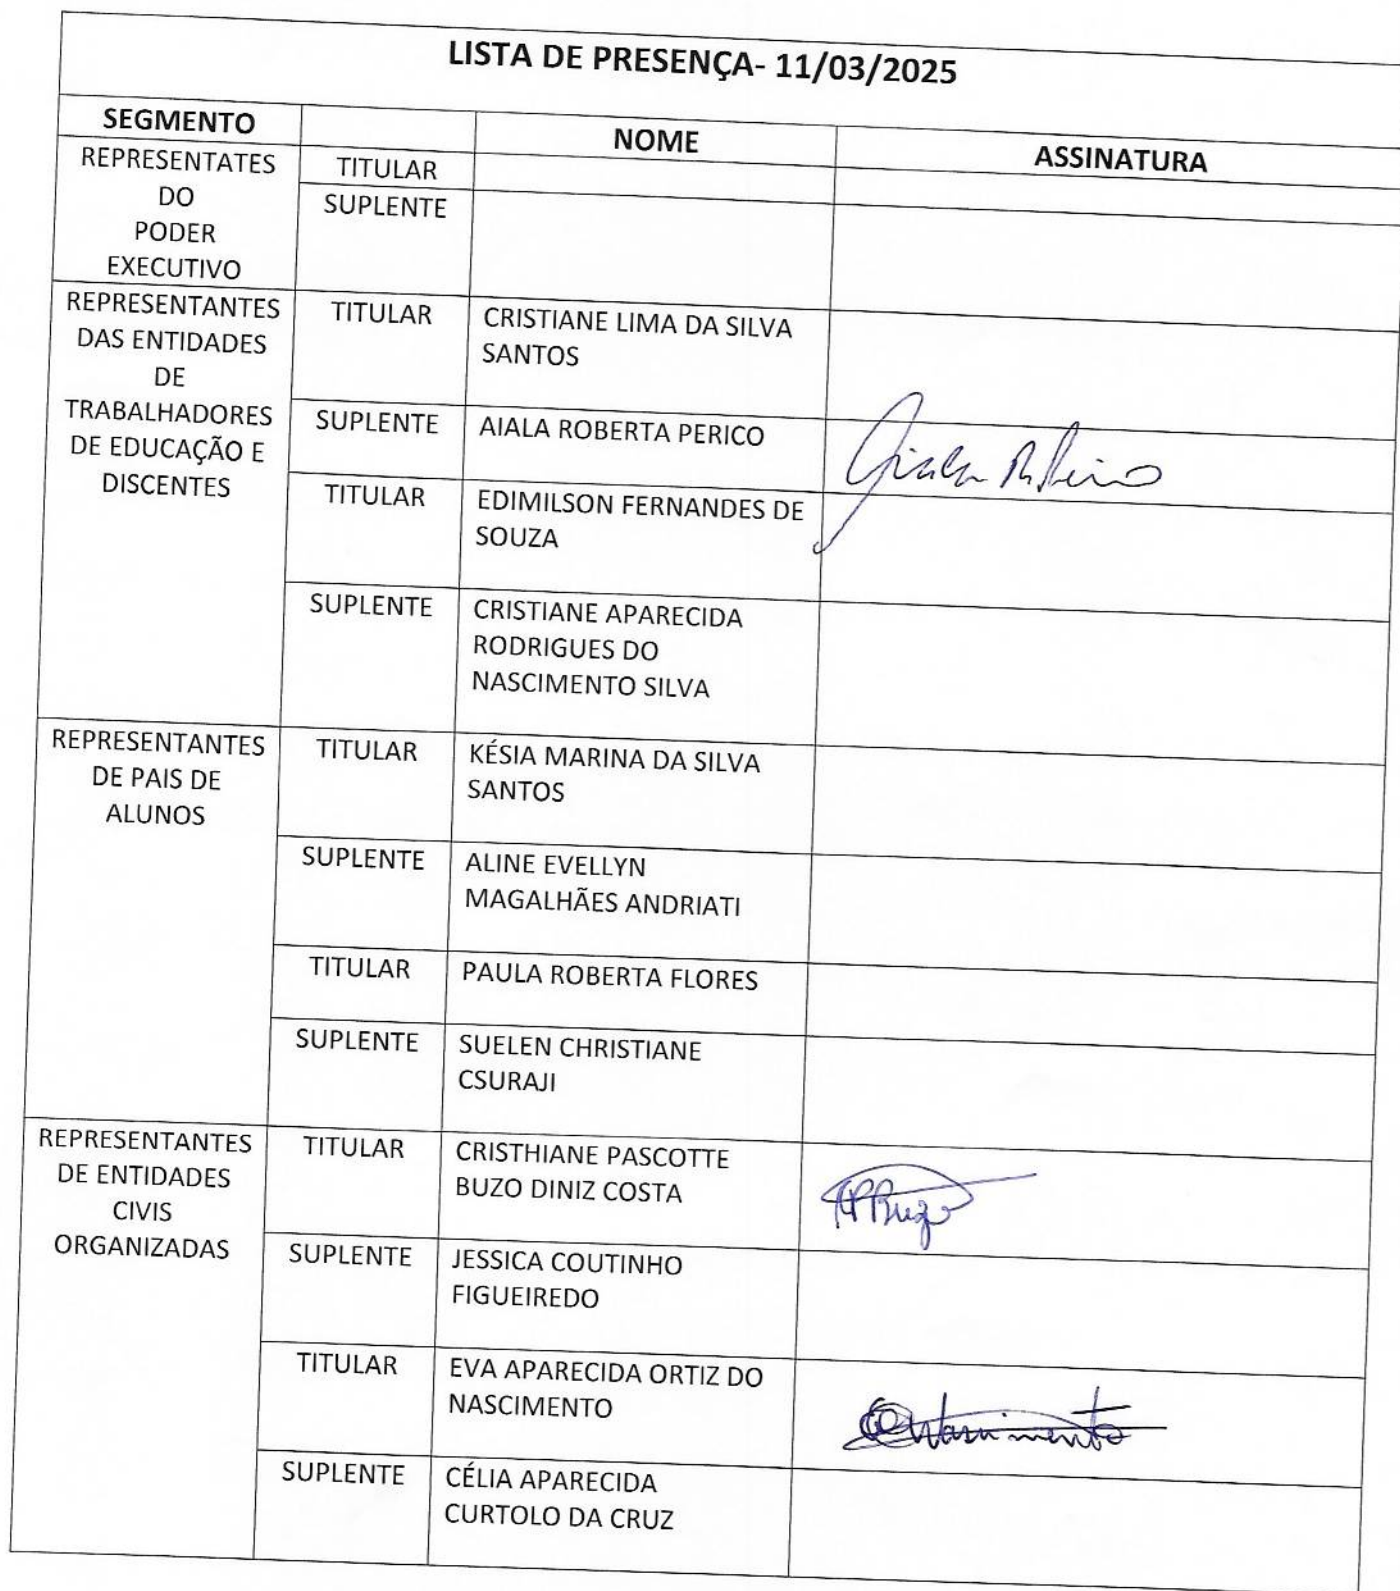 LISTA DE PRESENÇA- 11/03/2025
SEGMENTO NOME ASSINATURA
REPRESENTATES
DO
PODER
EXECUTIVO
TITULAR
SUPLENTE
REPRESENTANTES
DAS ENTIDADES
DE
TRABALHADORES
DE EDUCAÇÃO E
DISCENTES
TITULAR CRISTIANE LIMA DA SILVA
SANTOS
SUPLENTE AIALA ROBERTA PERICO
TITULAR EDIMILSON FERNANDES DE
SOUZA
SUPLENTE CRISTIANE APARECIDA
RODRIGUES DO
NASCIMENTO SILVA
REPRESENTANTES
DE PAIS DE
ALUNOS
TITULAR KÉSIA MARINA DA SILVA
SANTOS
SUPLENTE ALINE EVELLYN
MAGALHÃES ANDRIATI
TITULAR PAULA ROBERTA FLORES
SUPLENTE SUELEN CHRISTIANE
CSURAJI
REPRESENTANTES
DE ENTIDADES
CIVIS
ORGANIZADAS
TITULAR CRISTHIANE PASCOTTE
BUZO DINIZ COSTA
SUPLENTE JESSICA COUTINHO
FIGUEIREDO
TITULAR EVA APARECIDA ORTIZ DO
NASCIMENTO
SUPLENTE CÉLIA APARECIDA
CURTOLO DA CRUZ